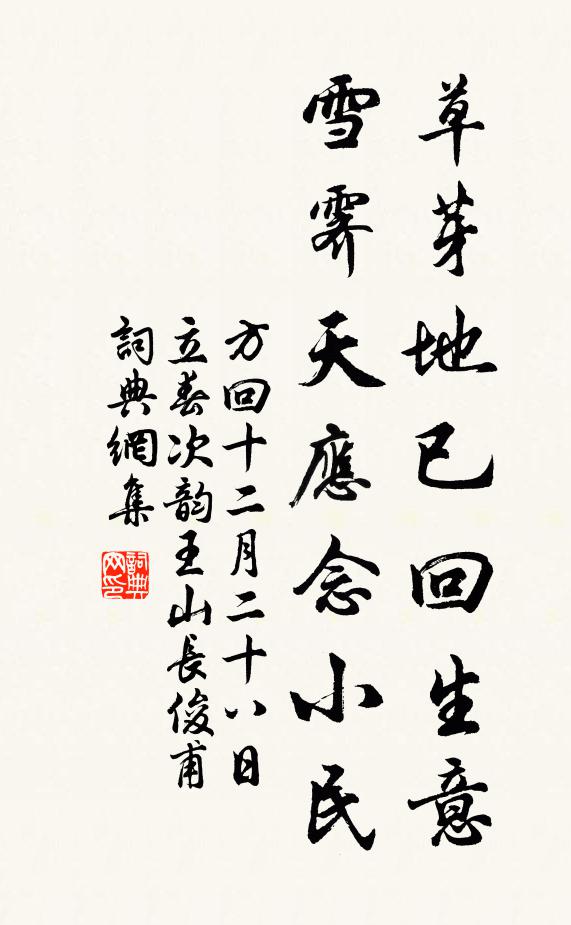 草芽地已回生意
雪霽天應念小民
方回十二月二十八日
立春次韵王山長俊甫
詞典網集
詞典網印